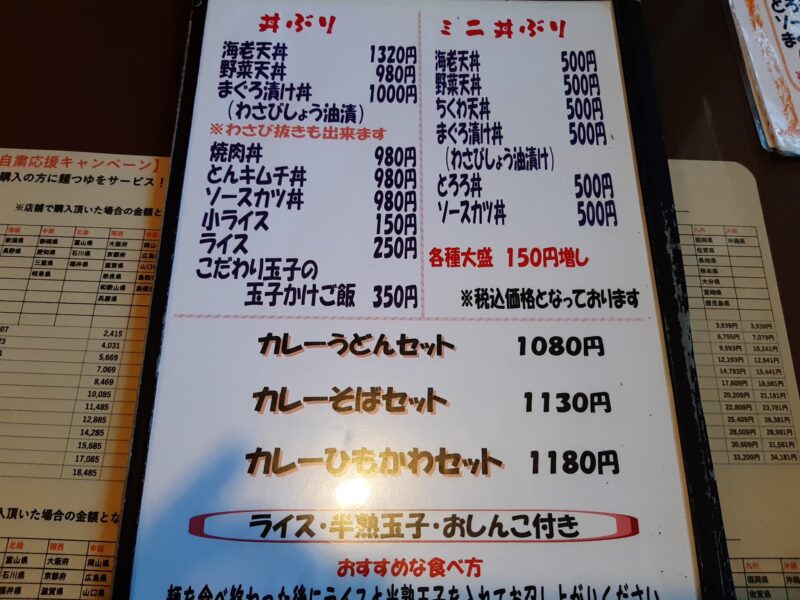 丼ぶり
海老天丼 1320円
野菜天丼 980円
まぐろ漬け丼 1000円
(わさびしょう油漬)
※わさび抜きも出来ます
焼肉丼 980円
とんキムチ丼 980円
ソースカツ丼 980円
小ライス 150円
ライス 250円
こだわり玉子の
玉子かけご飯 350円
ミニ丼ぶり
海老天丼 500円
野菜天丼 500円
ちくわ天丼 500円
まぐろ漬け丼 500円
(わさびしょう油漬け)
とろろ丼 500円
ソースカツ丼 500円
各種大盛 150円増し
※税込価格となっております
カレーうどんセット 1080円
カレーそばセット 1130円
カレーひもかわセット 1180円
ライス・半熟玉子・おしんこ付き
おすすめな食べ方
麺を食べ終わった後にライスと半熟玉子を入れてお召し上がりください
自粛応援キャンペーン】
購入の方に麺つゆをサービス!
※店舗で購入頂いた場合の金額と
新潟県 静岡県 富山県 大阪府 岡山
長野県 愛知県 石川県 京都府 広島
三重県 福井県 滋賀県
岐阜県 奈良県 山口
和歌山県
兵庫県
2,415
4,031
5,669
7,069
8,469
10,085
11,485
12,885
14,285
15,685
17,085
18,485
入頂いた場合の金額とな
北陸 関西 中国
富山県 大阪府 岡山県
石川県 京都府 広島県
福井県 滋賀県
九州 沖縄
福岡県 沖縄県
佐賀県
長崎県
熊本県
大分県
宮崎県
鹿児島県
3,939円 3,939円
6,755円 7,079円
9,593円 10,241円
12,193円 12,841円
14,793円 15,441円
17,609円 18,581円
20,209円 21,181円
22,809円 23,781円
25,409円 26,381円
28,009円 28,981円
30,609円 31,581円
33,209円 34,181円
とろろ
ソース